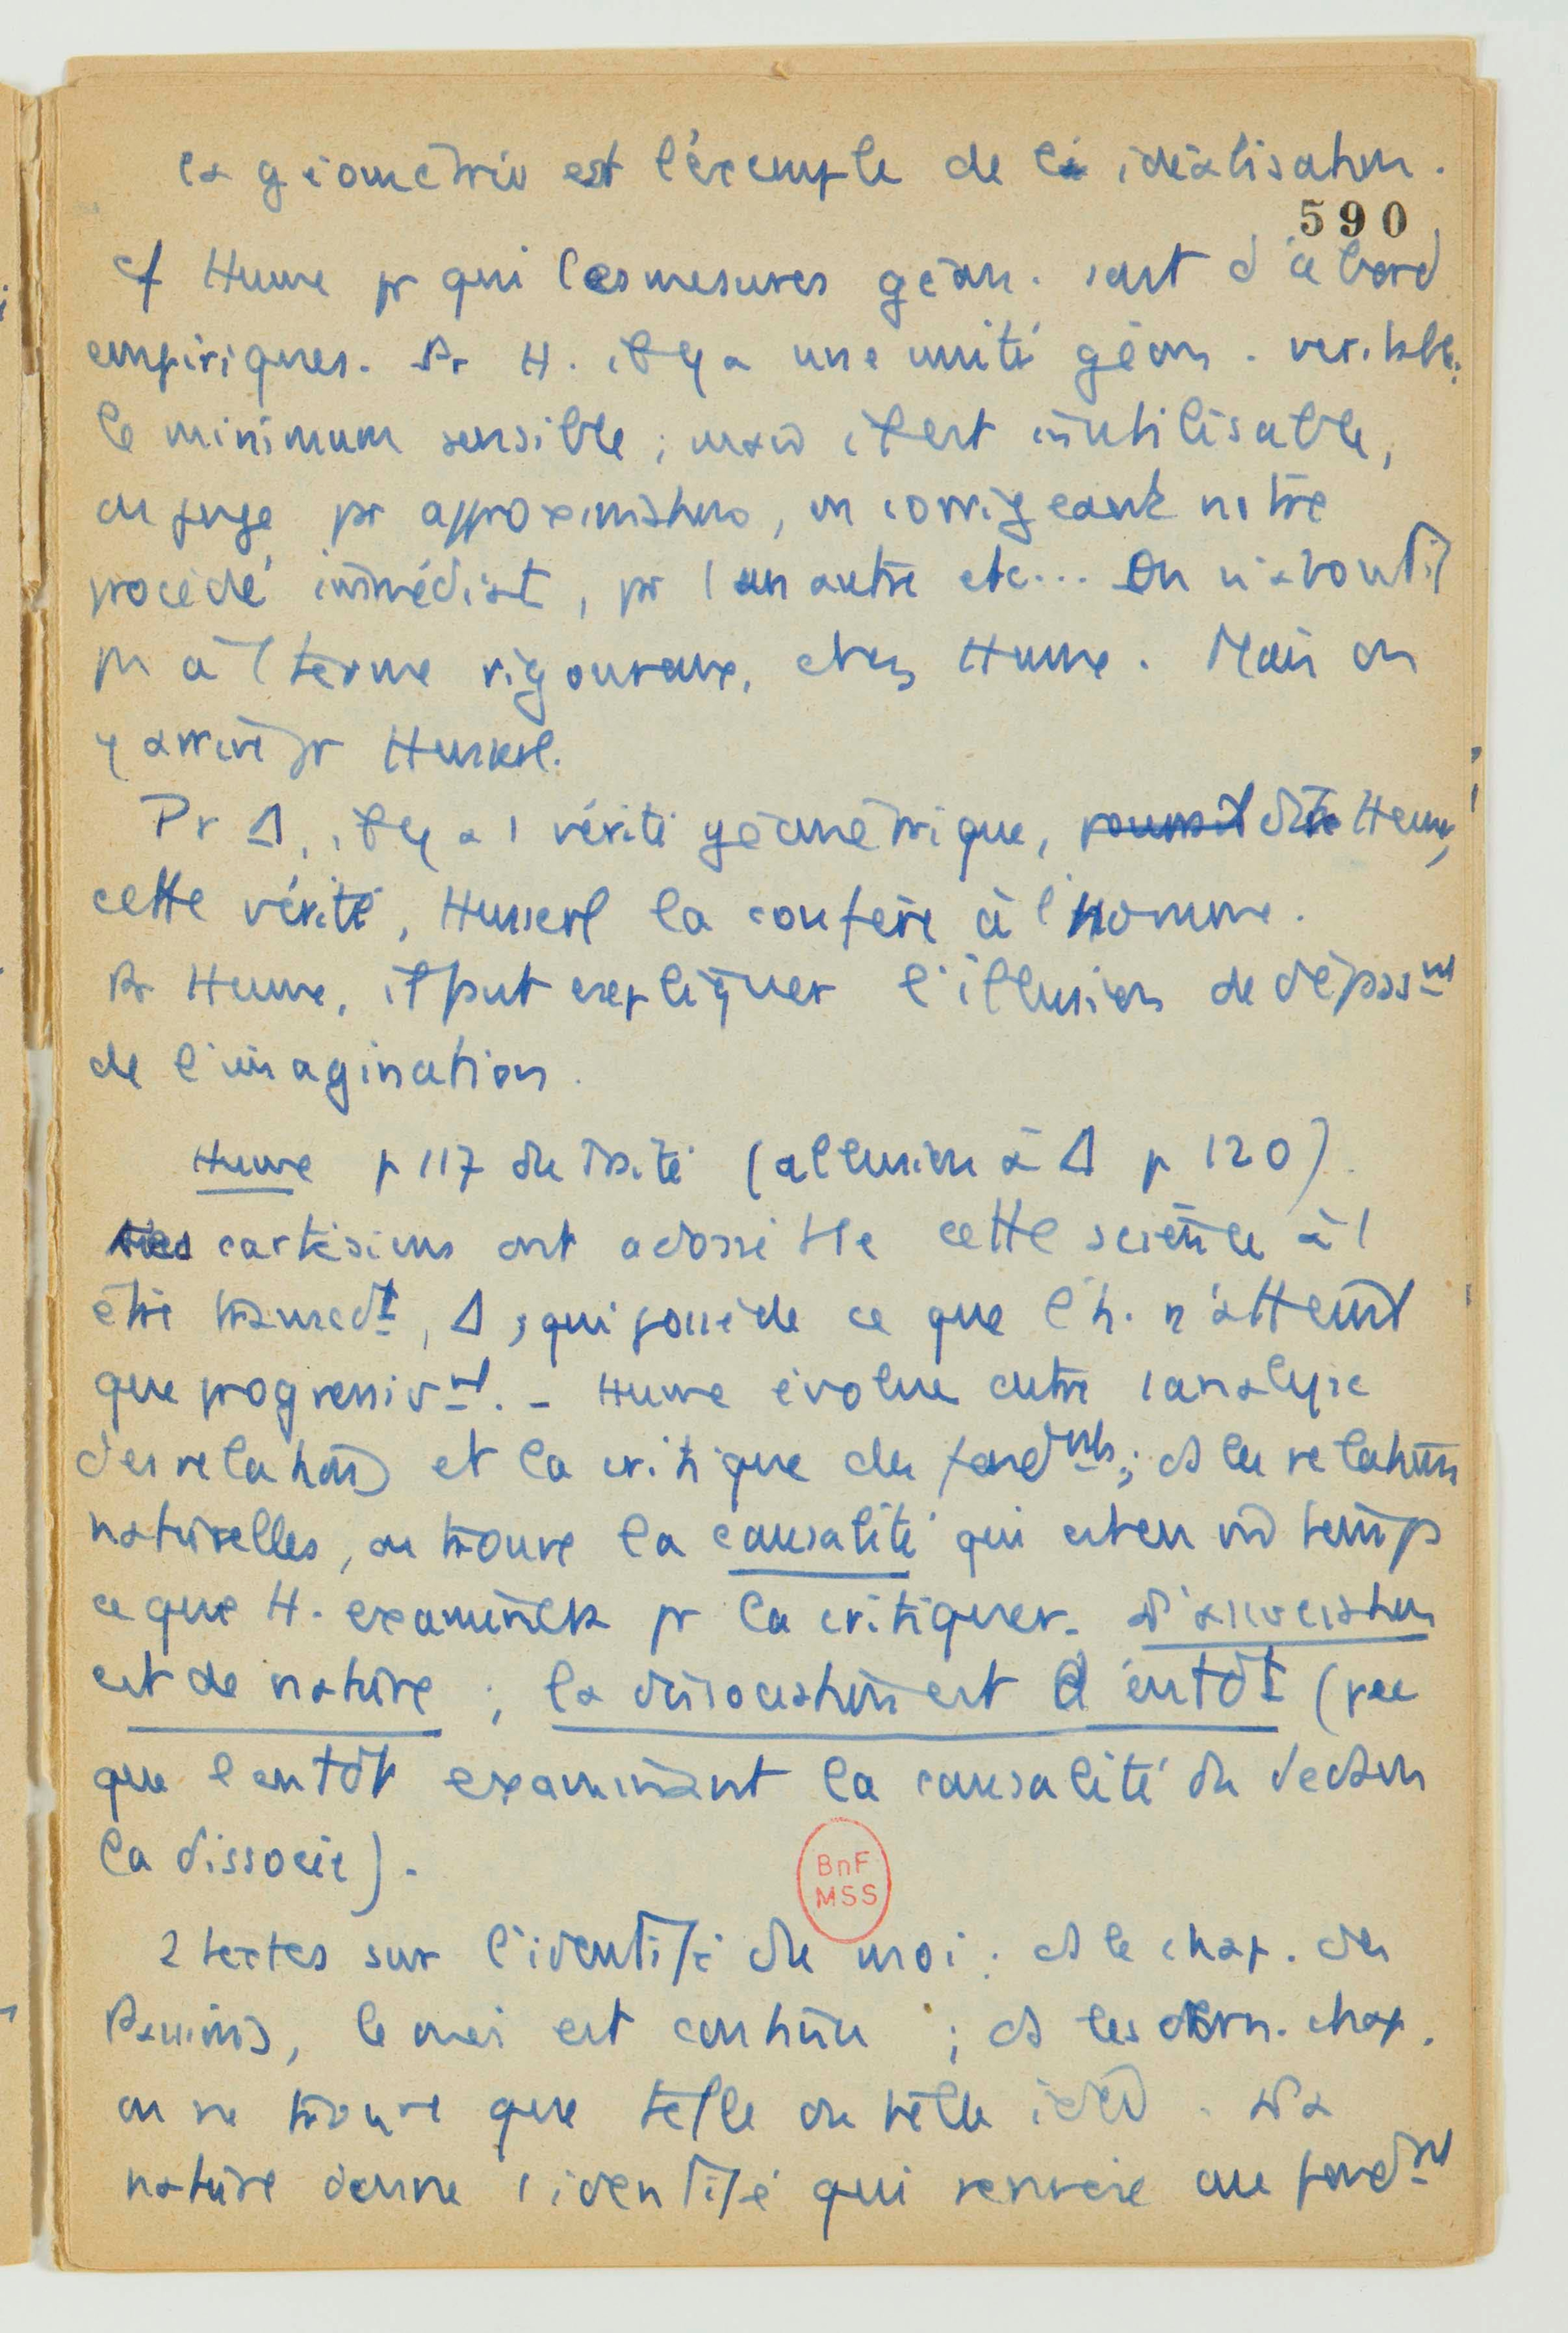 la géométrie est l'exemple de la idéalisation.
590
cf Hume pr qui les mesures géom. sont d'abord
empiriques. Pr H. il y a une unité géom. veritable:
le minimum sensible ; mais il est inutilisable,
on juge pr approximations, en corrigeant notre
procédé immédiat, pr 1 un autre etc... On n'aboutit
pas à 1 terme rigoureux, chez Hume. Mais on
y arrive pr Husserl.
Pr Δ, il y a 1 vérité géométrique, dit Hume,
cette vérité, Husserl la confère à l'homme.
Pr Hume, il faut expliquer l'illusion de dépassmt
de l'imagination.
Hume p 117 du Traité (allusion à Δ p 120).
Les cartésiens ont adossé tte cette science à 1
être transcdt, Δ, qui possède ce que l'h. n'atteint
que progressivmt. - Hume évolue entre l'analyse
des relations et la critique des fondmts ; ds les relations
naturelles, on trouve la causalité qui est en mê temps
ce que H. examinera pr la critiquer. L'association
est de nature ; la dissociation est d'entdt (vu
que l'entdt examinant la causalité du dedans
la dissocie).
BnF
MSS
2 textes sur l'identité du moi : ds le chap. des
Passions, le moi est continu ; ds les dern. chap.
on ne trouve que telle ou telle idée. La
nature donne l'identité qui renvoie au fondmt